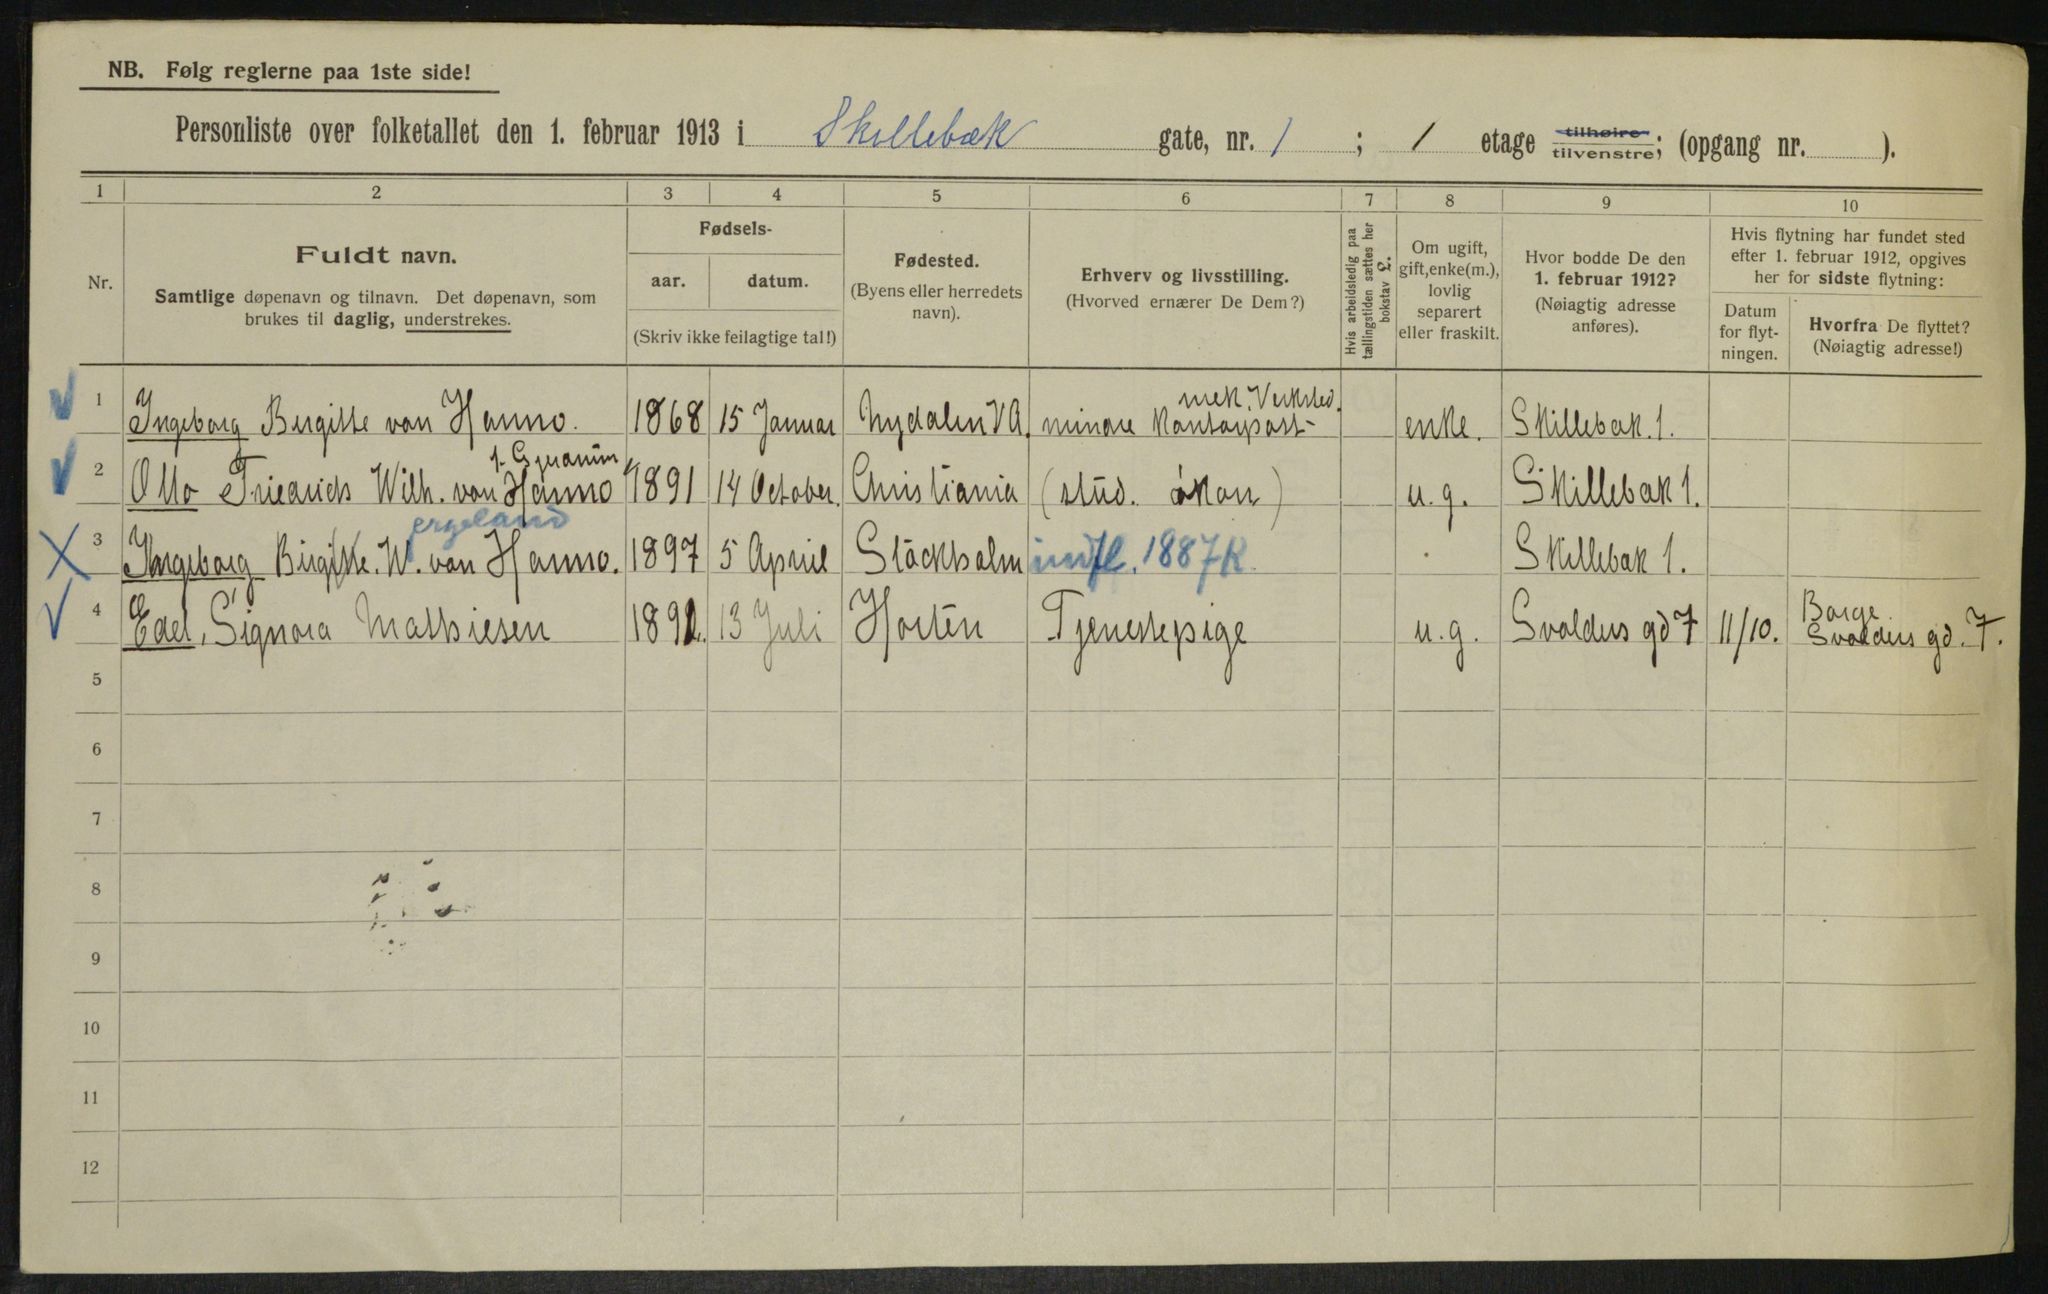 NB. Følg reglerne paa 1ste side!
Personliste over folketallet den 1. februar 1913 i Skillebæk gate, nr. 1 ; 1 etage tilhøire tilvenstre; (opgang nr. ).
1 2 3 4 5 6 7 8 9 10
Nr.
Fuldt navn.
Samtlige døpenavn og tilnavn. Det døpenavn, som
brukes til daglig, understrekes.
Fødsels-
aar. datum.
(Skriv ikke feilagtige tal!)
Fødested.
(Byens eller herredets
navn).
Erhverv og livsstilling.
(Hvorved ernærer De Dem?)
Hvis arbeidsledig paa
tællingstiden sættes her
bokstav L.
Om ugift,
gift, enke(m.),
lovlig
separert
eller fraskilt.
Hvor bodde De den
1. februar 1912?
(Nøiagtig adresse
anføres).
Hvis flytning har fundet sted
efter 1. februar 1912, opgives
her for sidste flytning:
Datum
for flyt-
ningen.
Hvorfra De flyttet?
(Nøiagtig adresse!)
mek. Verksted.
1 Ingeborg Birgitte van Hanno. 1868 15 Januar Nydalen V A. mindre Kontorpost- enke. Skillebæk. 1.
2 Otto Friedrich Wilh. van Hanno 1891 14 October. Christiania (stud. økon) u. g. Skillebæk 1.
3 Ingeborg Birgitte. W. van Hanno. 1897 5 April Stockholm indfl. 1887 K. Skillebæk 1.
Borge
4 Edel, Signora Mathiesen 1892. 13 Juli Horten Tjenestepige u. g. Svolders gd 7 11/10. Svolders gd. 7.
5
6
7
8
9
10
11
12